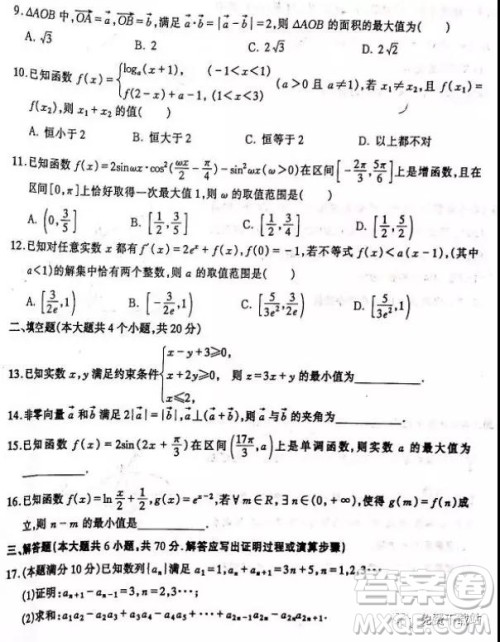 9. △AOB 中, $\overrightarrow{OA}=\vec{a}$, $\overrightarrow{OB}=\vec{b}$, 满足 $\vec{a}\cdot\vec{b}=|\vec{a}-\vec{b}|=2$, 则 △AOB 的面积的最大值为( )
A. $\sqrt{3}$ B. 2 C. $2\sqrt{3}$ D. $2\sqrt{2}$
10. 已知函数 $f(x)=\begin{cases}\log_a(x+1), & (-1<x<1)\\ f(2-x)+a-1, & (1<x<3)\end{cases}$ (a>0 且 a≠1), 若 $x_1\neq x_2$, 且 $f(x_1)=$
$f(x_2)$, 则 $x_1+x_2$ 的值( )
A. 恒小于 2 B. 恒大于 2 C. 恒等于 2 D. 以上都不对
11. 已知函数 $f(x)=2\sin\omega x\cdot\cos^2(\frac{\omega x}{2}-\frac{\pi}{4})-\sin^2\omega x(\omega>0)$ 在区间 $[-\frac{2\pi}{3},\frac{5\pi}{6}]$ 上是增函数, 且在
区间 $[0,\pi]$ 上恰好取得一次最大值 1, 则 ω 的取值范围是( )
A. $(0,\frac{3}{5}]$ B. $[\frac{1}{2},\frac{3}{5}]$ C. $[\frac{1}{2},\frac{3}{4}]$ D. $[\frac{1}{2},\frac{5}{2})$
12. 已知对任意实数 x 都有 $f'(x)=2e^x+f(x)$, $f(0)=-1$, 若不等式 $f(x)<a(x-1)$, (其中
a<1) 的解集中恰有两个整数, 则 a 的取值范围是( )
A. $[\frac{3}{2e},1)$ B. $[-\frac{3}{2e},1)$ C. $[\frac{5}{3e^2},1)$ D. $[\frac{5}{3e^2},\frac{3}{2e})$
二、填空题(本大题共 4 个小题,共 20 分)
13. 已知实数 x, y 满足约束条件 $\begin{cases}x-y+3\geqslant 0,\\ x+2y\geqslant 0,\\ x\leqslant 2,\end{cases}$ 则 z=3x+y 的最小值为________.
14. 非零向量 $\vec{a}$ 和 $\vec{b}$ 满足 $2|\vec{a}|=|\vec{b}|$, $\vec{a}\perp(\vec{a}+\vec{b})$, 则 $\vec{a}$ 与 $\vec{b}$ 的夹角为________.
15. 已知函数 $f(x)=2\sin(2x+\frac{\pi}{3})$ 在区间 $(\frac{17\pi}{3},a)$ 上是单调函数, 则实数 a 的最大值为
________.
16. 已知函数 $f(x)=\ln\frac{x}{2}+\frac{1}{2}$, $g(x)=e^{x-2}$, 若 ∀m∈R, ∃n∈(0,+∞), 使得 g(m)=f(n) 成
立, 则 n-m 的最小值是________.
三、解答题(本大题共 6 小题,共 70 分.解答应写出证明过程或演算步骤)
17. (本题满分 10 分)已知数列 $|a_n|$ 满足 $a_1=1$, $a_n+a_{n+1}=3n+5$, n=1,2,3…
(1)证明: $a_{n+1}-a_{n-1}=3$, n=2,3…
(2)求和: $a_1a_2-a_2a_3+a_3a_4-a_4a_5+\cdots+a_{2n-1}a_{2n}-a_{2n}a_{2n+1}$.
答案圈